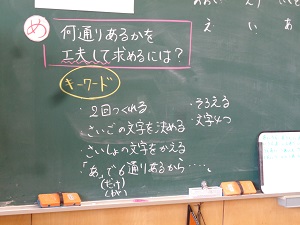 め
何通りあるかを
工夫して求めるには?
キーワード
・2回つくれる
・さいごの文字を決める
・さいしょの文字をかえる
「あ」で6通りあるから……。
(だけ)
・そろえる
・文字4つ
え い あ